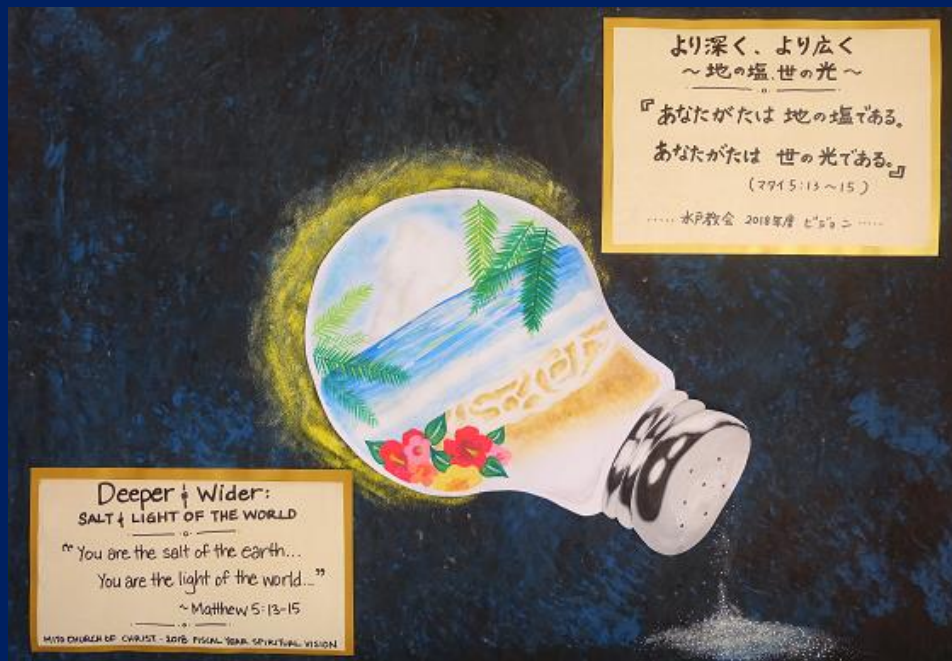 より深く、より広く
〜地の塩、世の光〜
『あなたがたは 地の塩である。
あなたがたは 世の光である。』
(マタイ5:13〜15)
..... 水戸教会 2018年度 ビジョン .....
Deeper & Wider:
SALT & LIGHT OF THE WORLD
"You are the salt of the earth...
You are the light of the world..."
~Matthew 5:13-15
MITO CHURCH OF CHRIST - 2018 FISCAL YEAR SPIRITUAL VISION